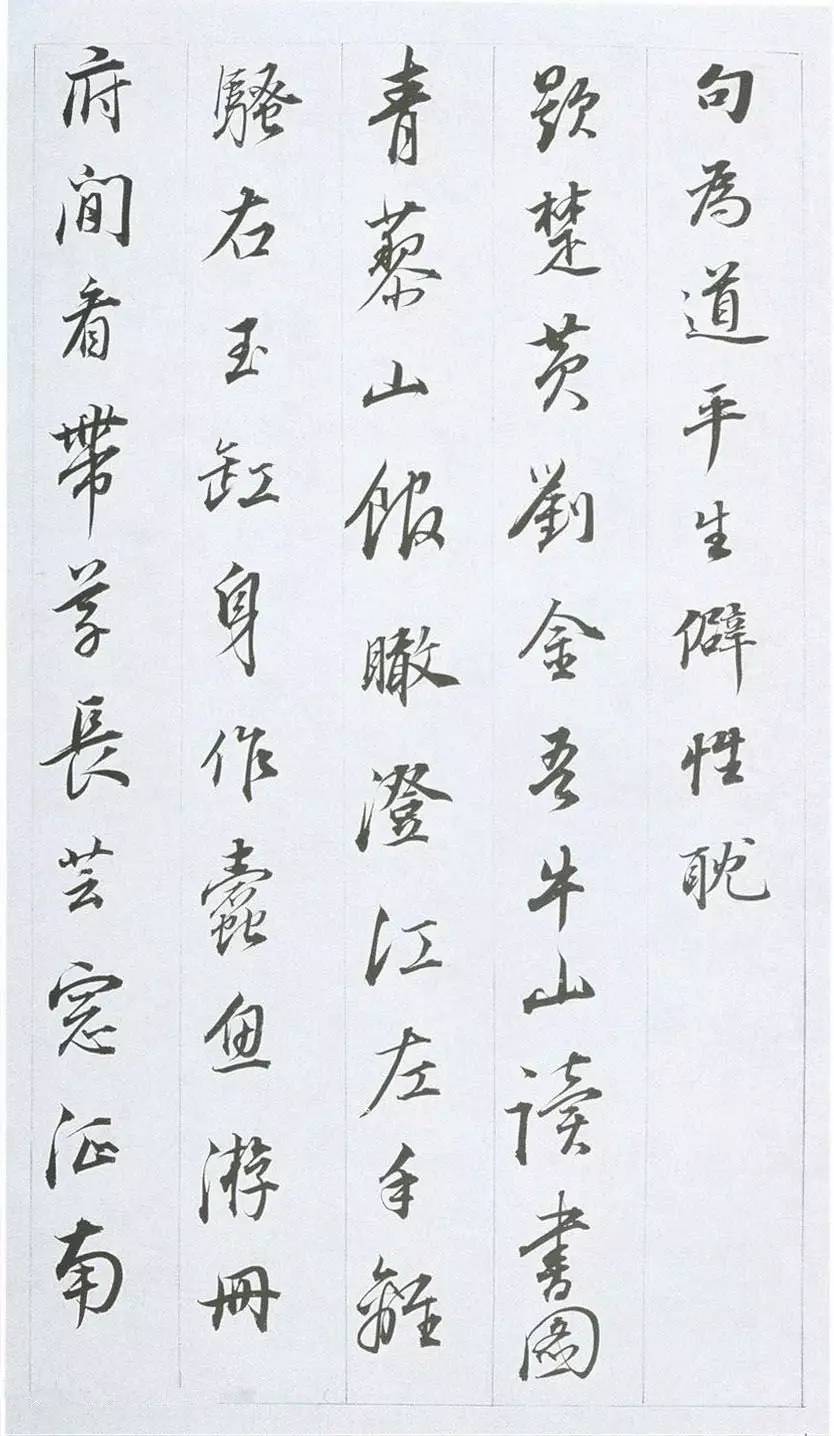 句為道平生僻性耽
題楚黄劉金吾牛山读書圖
青藜山館瞰澄江左手離
騷右玉缸身作蠹魚游冊
府閒看帶草長芸窓征南